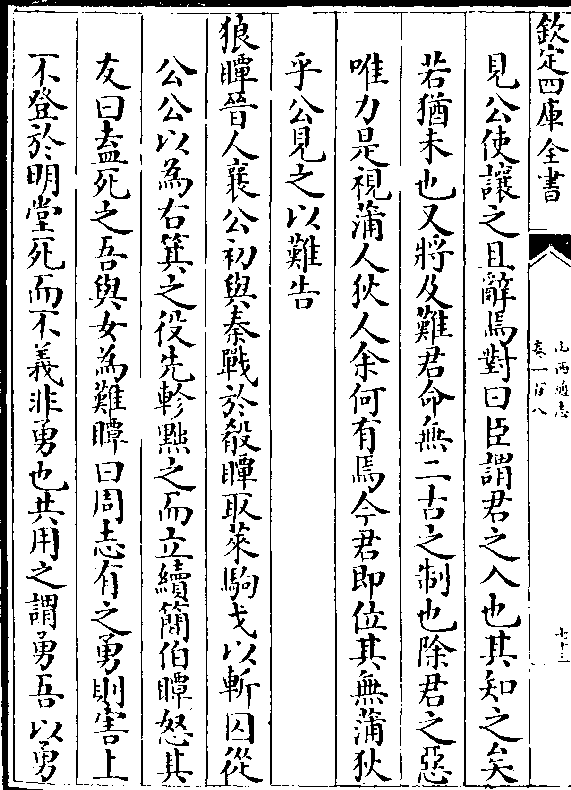 欽定四庫全書
山西通志
卷一百八
七十三
見公使讓之且辭焉對曰臣謂君之入也其知之矣
若猶未也又將及難君命無二古之制也除君之惡
唯力是視蒲人狄人余何有焉今君即位其無蒲狄
乎公見之以難告
狼瞫晉人襄公初與秦戰於殽瞫取萊駒戈以斬囚從
公公以為右箕之役先軫黜之而立續簡伯瞫怒其
友曰盍死之吾與女為難瞫曰周志有之勇則害上
不登於明堂死而不義非勇也共用之謂勇吾以勇